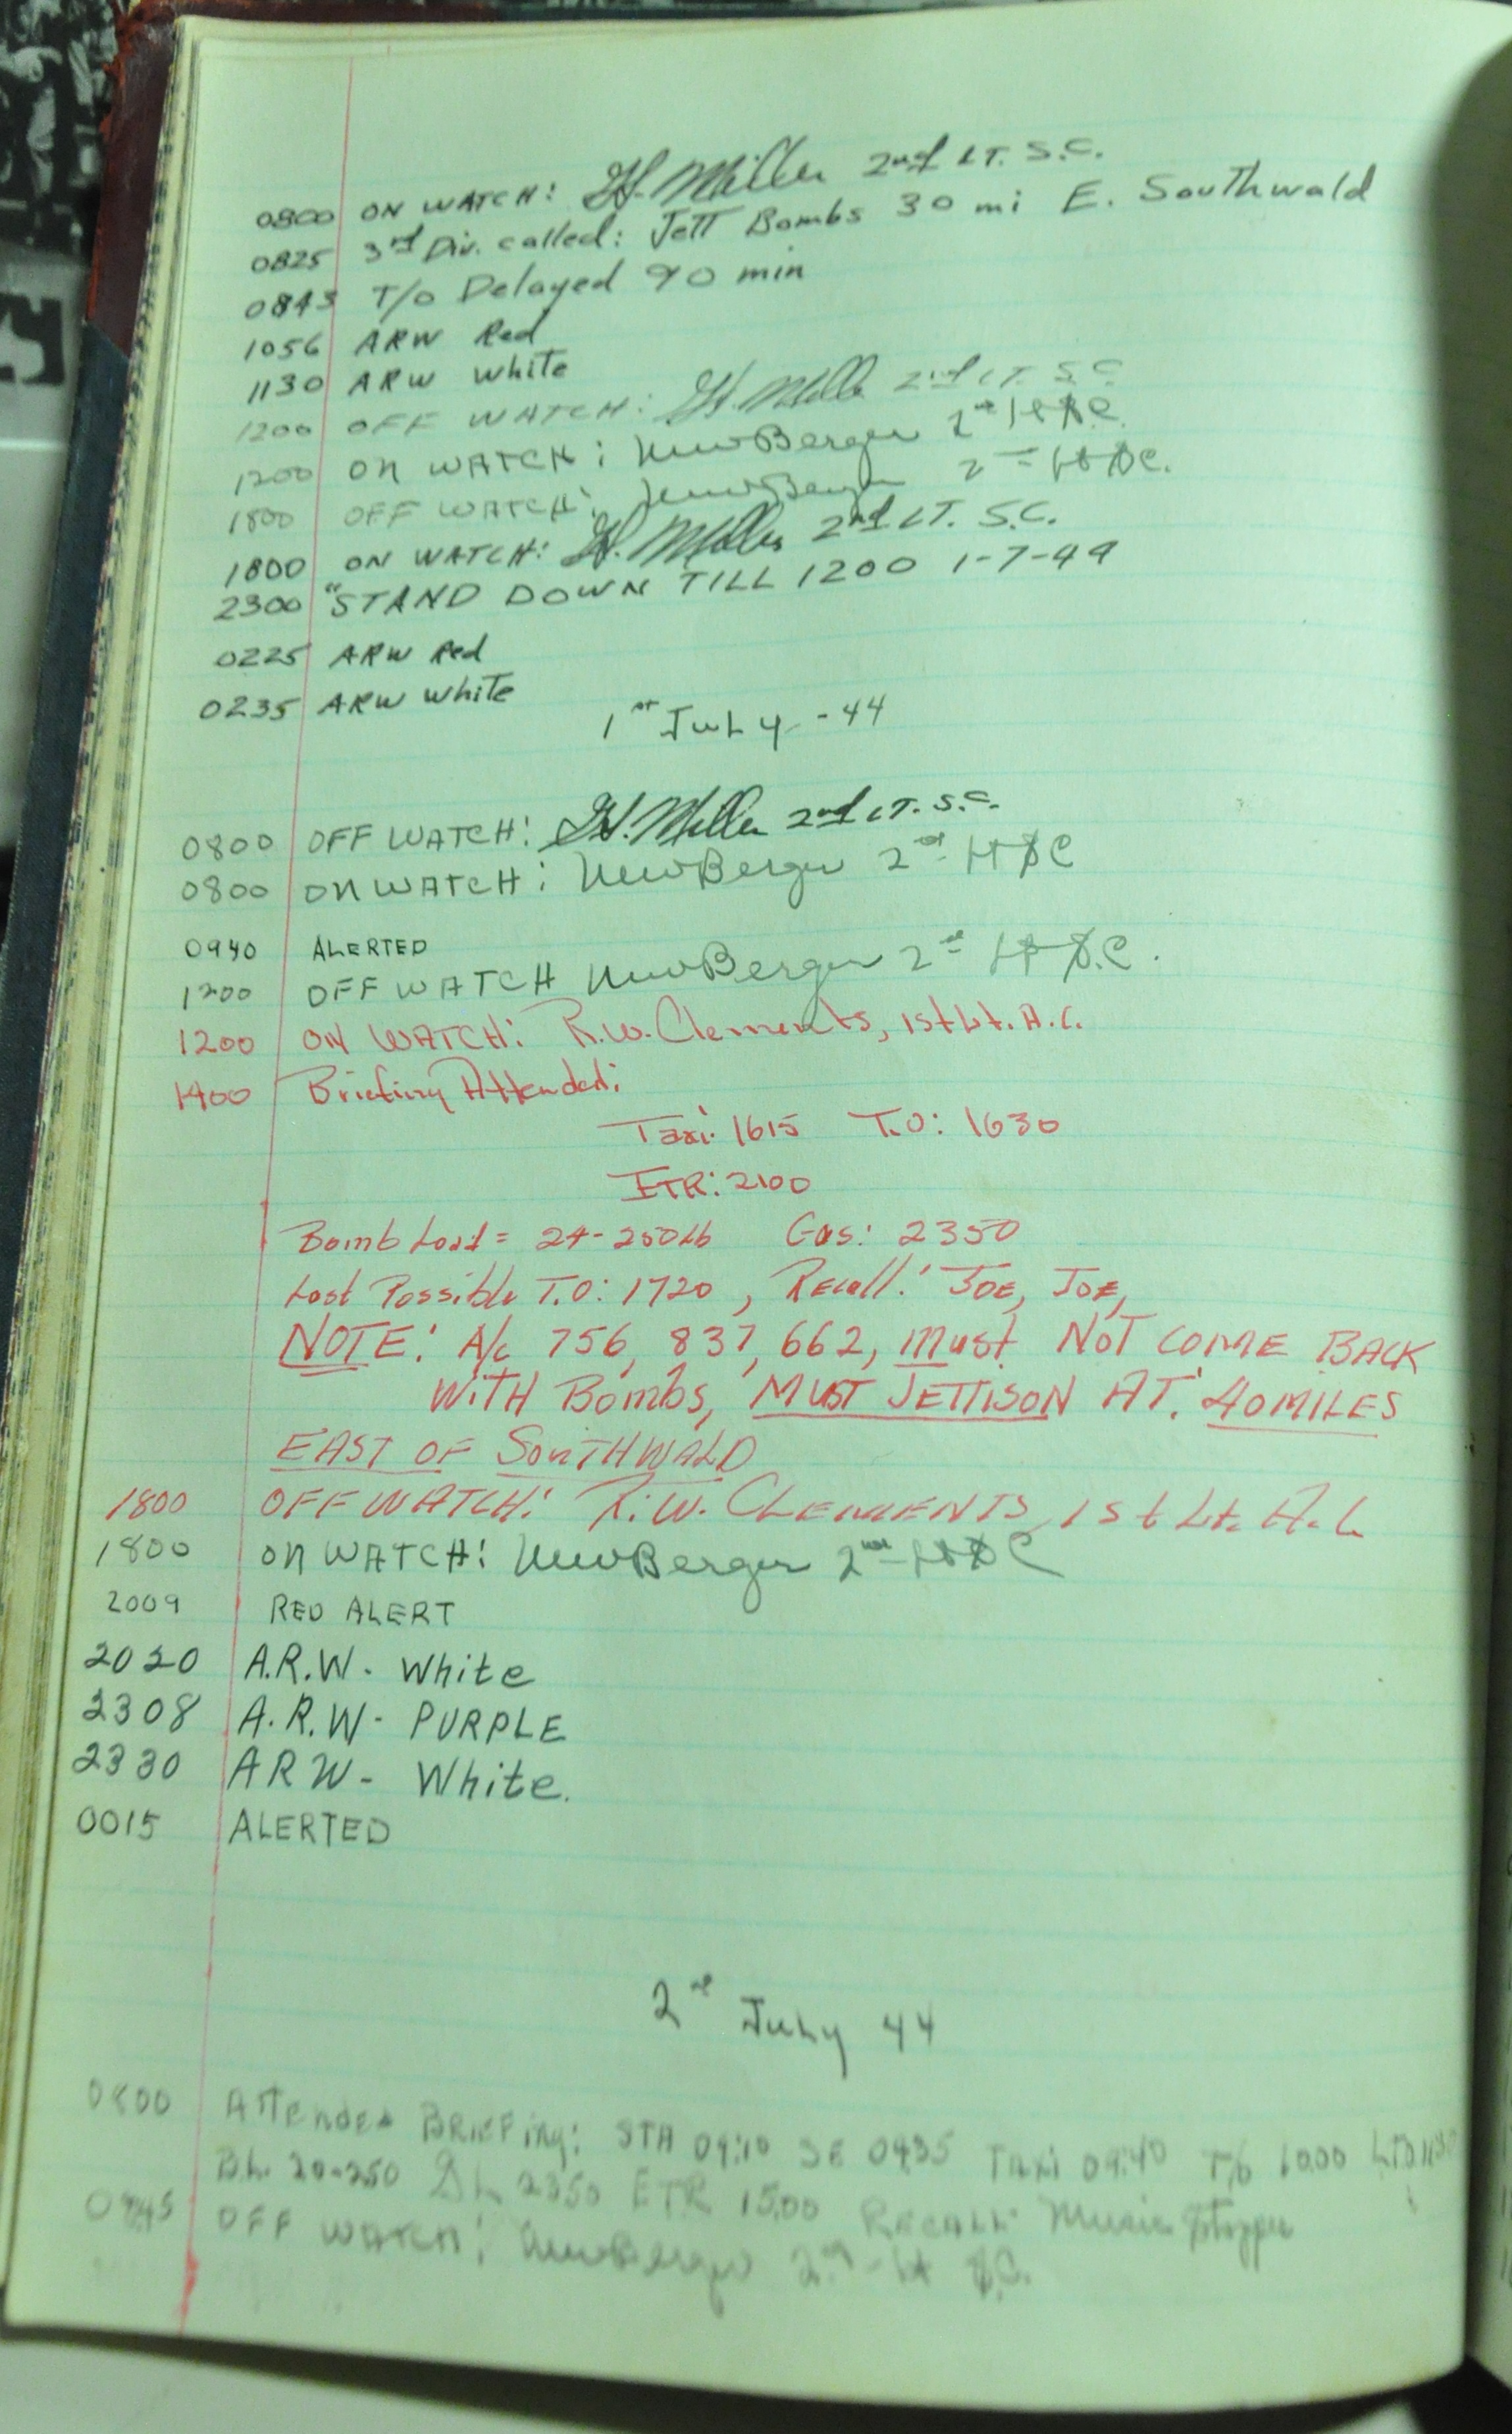 0800 ON WATCH: H. Miller 2nd LT. S.C.
0825 3rd Div. called: Jett Bombs 30 mi E. Southwald
0843 T/O Delayed 90 min
1056 ARW Red
1130 ARW White
1200 OFF WATCH: H. Miller 2nd LT. S.C
1200 ON WATCH: NewBerger 2nd Lt S.C.
1800 OFF WATCH: NewBerger 2nd Lt S.C.
1800 ON WATCH: H. Miller 2nd LT. S.C.
2300 "STAND DOWN TILL 1200 1-7-44
0225 ARW Red
0235 ARW White
1st July - 44
0800 OFF WATCH: H. Miller 2nd LT. S.C.
0800 ON WATCH: NewBerger 2nd Lt SC
0940 ALERTED
1200 OFF WATCH NewBerger 2nd Lt S.C.
1200 ON WATCH: R.W. Clements, 1st Lt. A.C.
1400 Briefing Attended:
Taxi: 1615 T.O: 1630
ETR: 2100
Bomb Load = 24-250 Lb Gas: 2350
Last Possible T.O: 1720, Recall: JOE, JOE,
NOTE: A/c 756, 837, 662, Must NOT COME BACK
WITH Bombs, MUST JETTISON AT: 40 MILES
EAST OF SOUTHWALD
1800 OFF WATCH: R.W. CLEMENTS, 1st Lt. A.C.
1800 ON WATCH: NewBerger 2nd Lt SC
2009 RED ALERT
2020 A.R.W. White
2308 A.R.W- PURPLE
2330 ARW- White.
0015 ALERTED
2nd July 44
0800 Attended BRIEFING: STA 09:10 SE 0935 TAXI 09:40 T/O 10.00
B.L. 20-250 2350 ETR 15.00 RECALL: Music Stopper
0845 OFF WATCH: NewBerger 2nd Lt S.C.